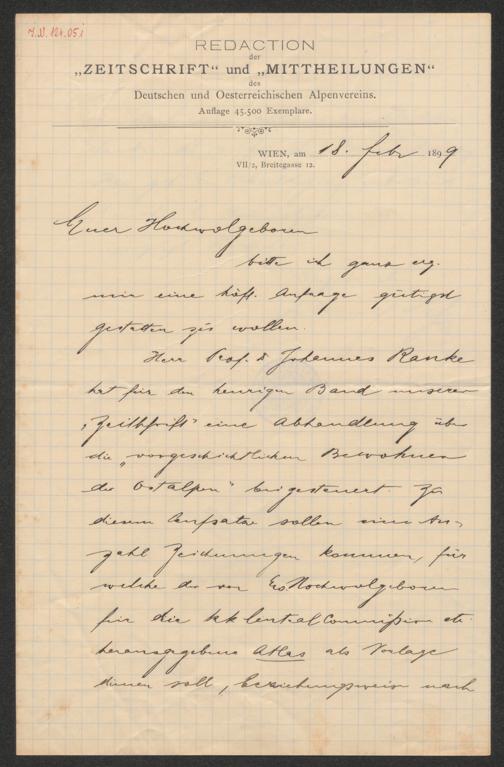 J.N. 124.051
REDACTION
der
„ZEITSCHRIFT“ und „MITTHEILUNGEN“
des
Deutschen und Oesterreichischen Alpenvereins.
Auflage 45.500 Exemplare.
WIEN, am 18. Febr 1899
VII/2, Breitegasse 12.
Euer Hochwolgeboren
bitte ich ganz erg.
mir eine höfl. Anfrage gütigst
gestatten zu wollen.
Herr Prof. Dr Johannes Ranke
hat für den heurigen Band unserer
„Zeitschrift“ eine Abhandlung über
die „vorgeschichtlichen Bewohner
der Ostalpen“ beigesteuert. Zu
diesem Aufsatze sollen eine An-
zahl Zeichnungen kommen, für
welche der von Ew Hochwolgeboren
für die kk Central Commission etc.
herausgegebene Atlas als Vorlage
dienen soll, beziehungsweise nach